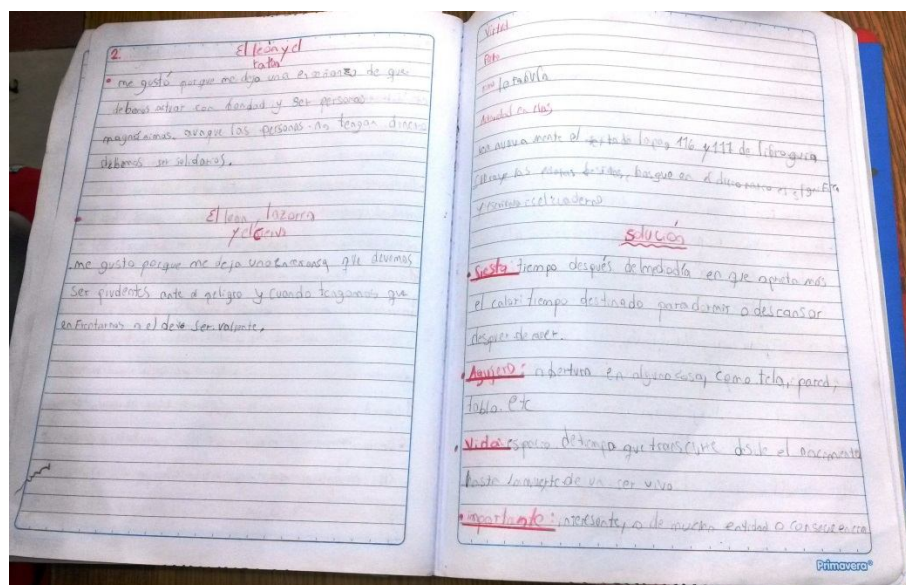 2.
El león y el
ratón
• me gustó porque me deja una enseñanza de que
debemos actuar con bondad y ser personas
magnánimas, aunque las personas no tengan dinero
debemos ser solidarios.
El leon, lazorra
y el Ciervo
me gusta porque me deja una que devemos
ser prudentes ante el peligro y cuando tengamos que
enfrentarnos a el deve ser valiente.
Virtal
la fabula
Actividad en clas
mente el la pag 116 y 117 de libro guia
las busque en el diccionario el
y en el cuaderno
Solución
• Siesta tiempo después de mediodía en que aprieta más
el calor: tiempo destinado para dormir o descansar
despues de comer.
• Agujero: abertura en alguna cosa, como tela, pared,
tabla. etc
• Vida: espacio de tiempo que transcurre desde el nacimiento
hasta la muerte de un ser vivo.
• importante: interesante, o de mucha entidad o consecuencia
Primavera®